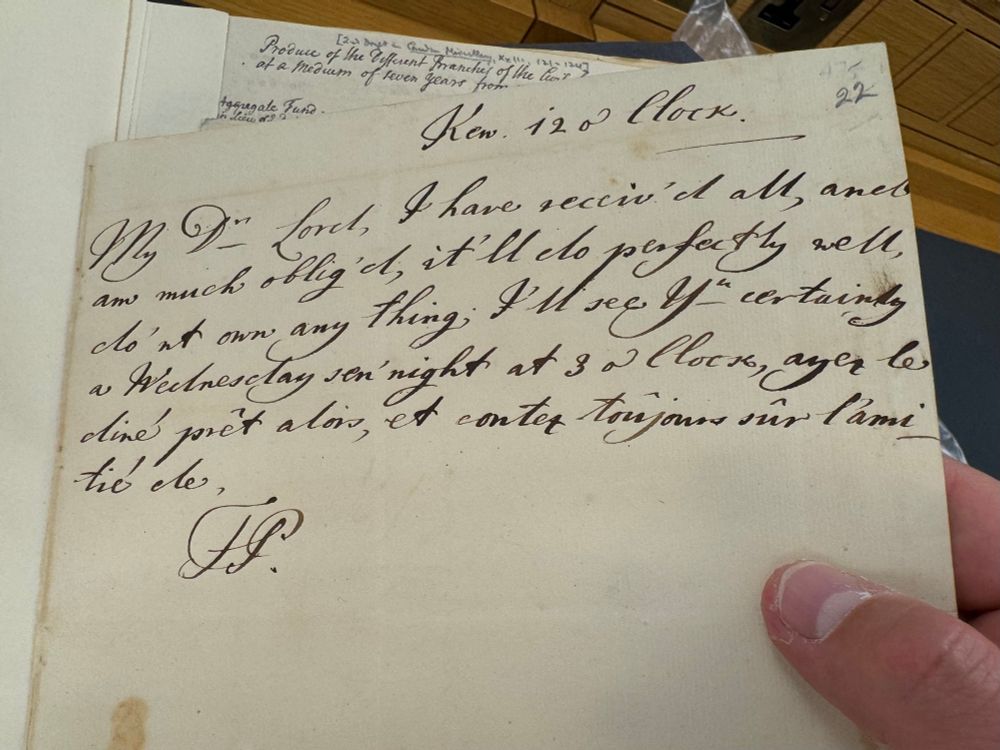 [2d Draft in
Produce of the Different Branches of the
at a Medium of Seven Years from
Aggregate Fund.
22
Kew. 12 o Clock.
My Dr. Lord, I have receiv'd all, and
am much oblig'd, it'll do perfectly well,
do'nt own any thing; I'll see Yu certainly
a Wednesday sen'night at 3 o Clock, ayez le
diné prêt alors, et contez toûjours sûr l'ami
tié de,
FP.